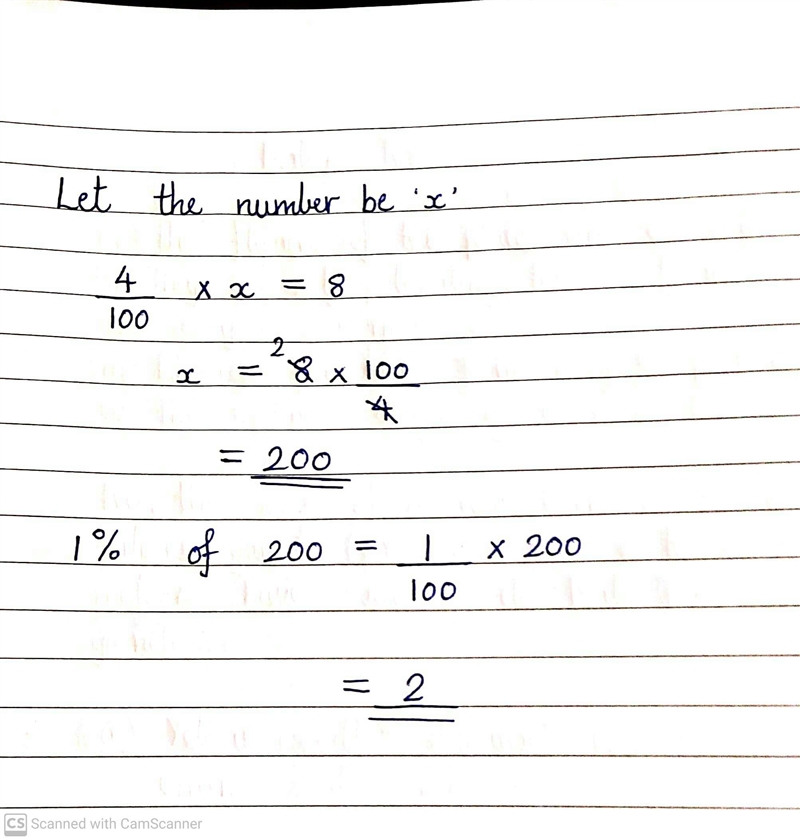 Let the number be 'x'
4/100 × x = 8
x = 2 8 × 100/4
= 200
1% of 200 = 1/100 × 200
= 2
CS Scanned with CamScanner